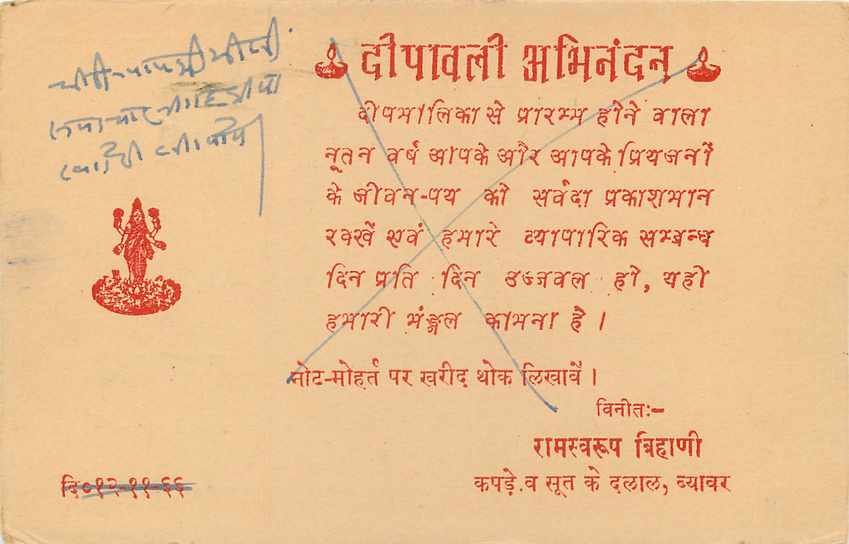 दीपावली अभिनंदन
दीपमालिका से प्रारम्भ होने वाला
नूतन वर्ष आपके और आपके प्रियजनों
के जीवन-पथ को सर्वदा प्रकाशमान
रक्खें एवं हमारे व्यापारिक सम्बन्ध
दिन प्रति दिन उज्जवल हो, यही
हमारी मंङ्गल कामना है ।
नोट-मोहर्त पर खरीद थोक लिखावें ।
विनीतः-
रामस्वरूप बिहाणी
कपड़े व सूत के दलाल, ब्यावर
दि०१२-११-६६